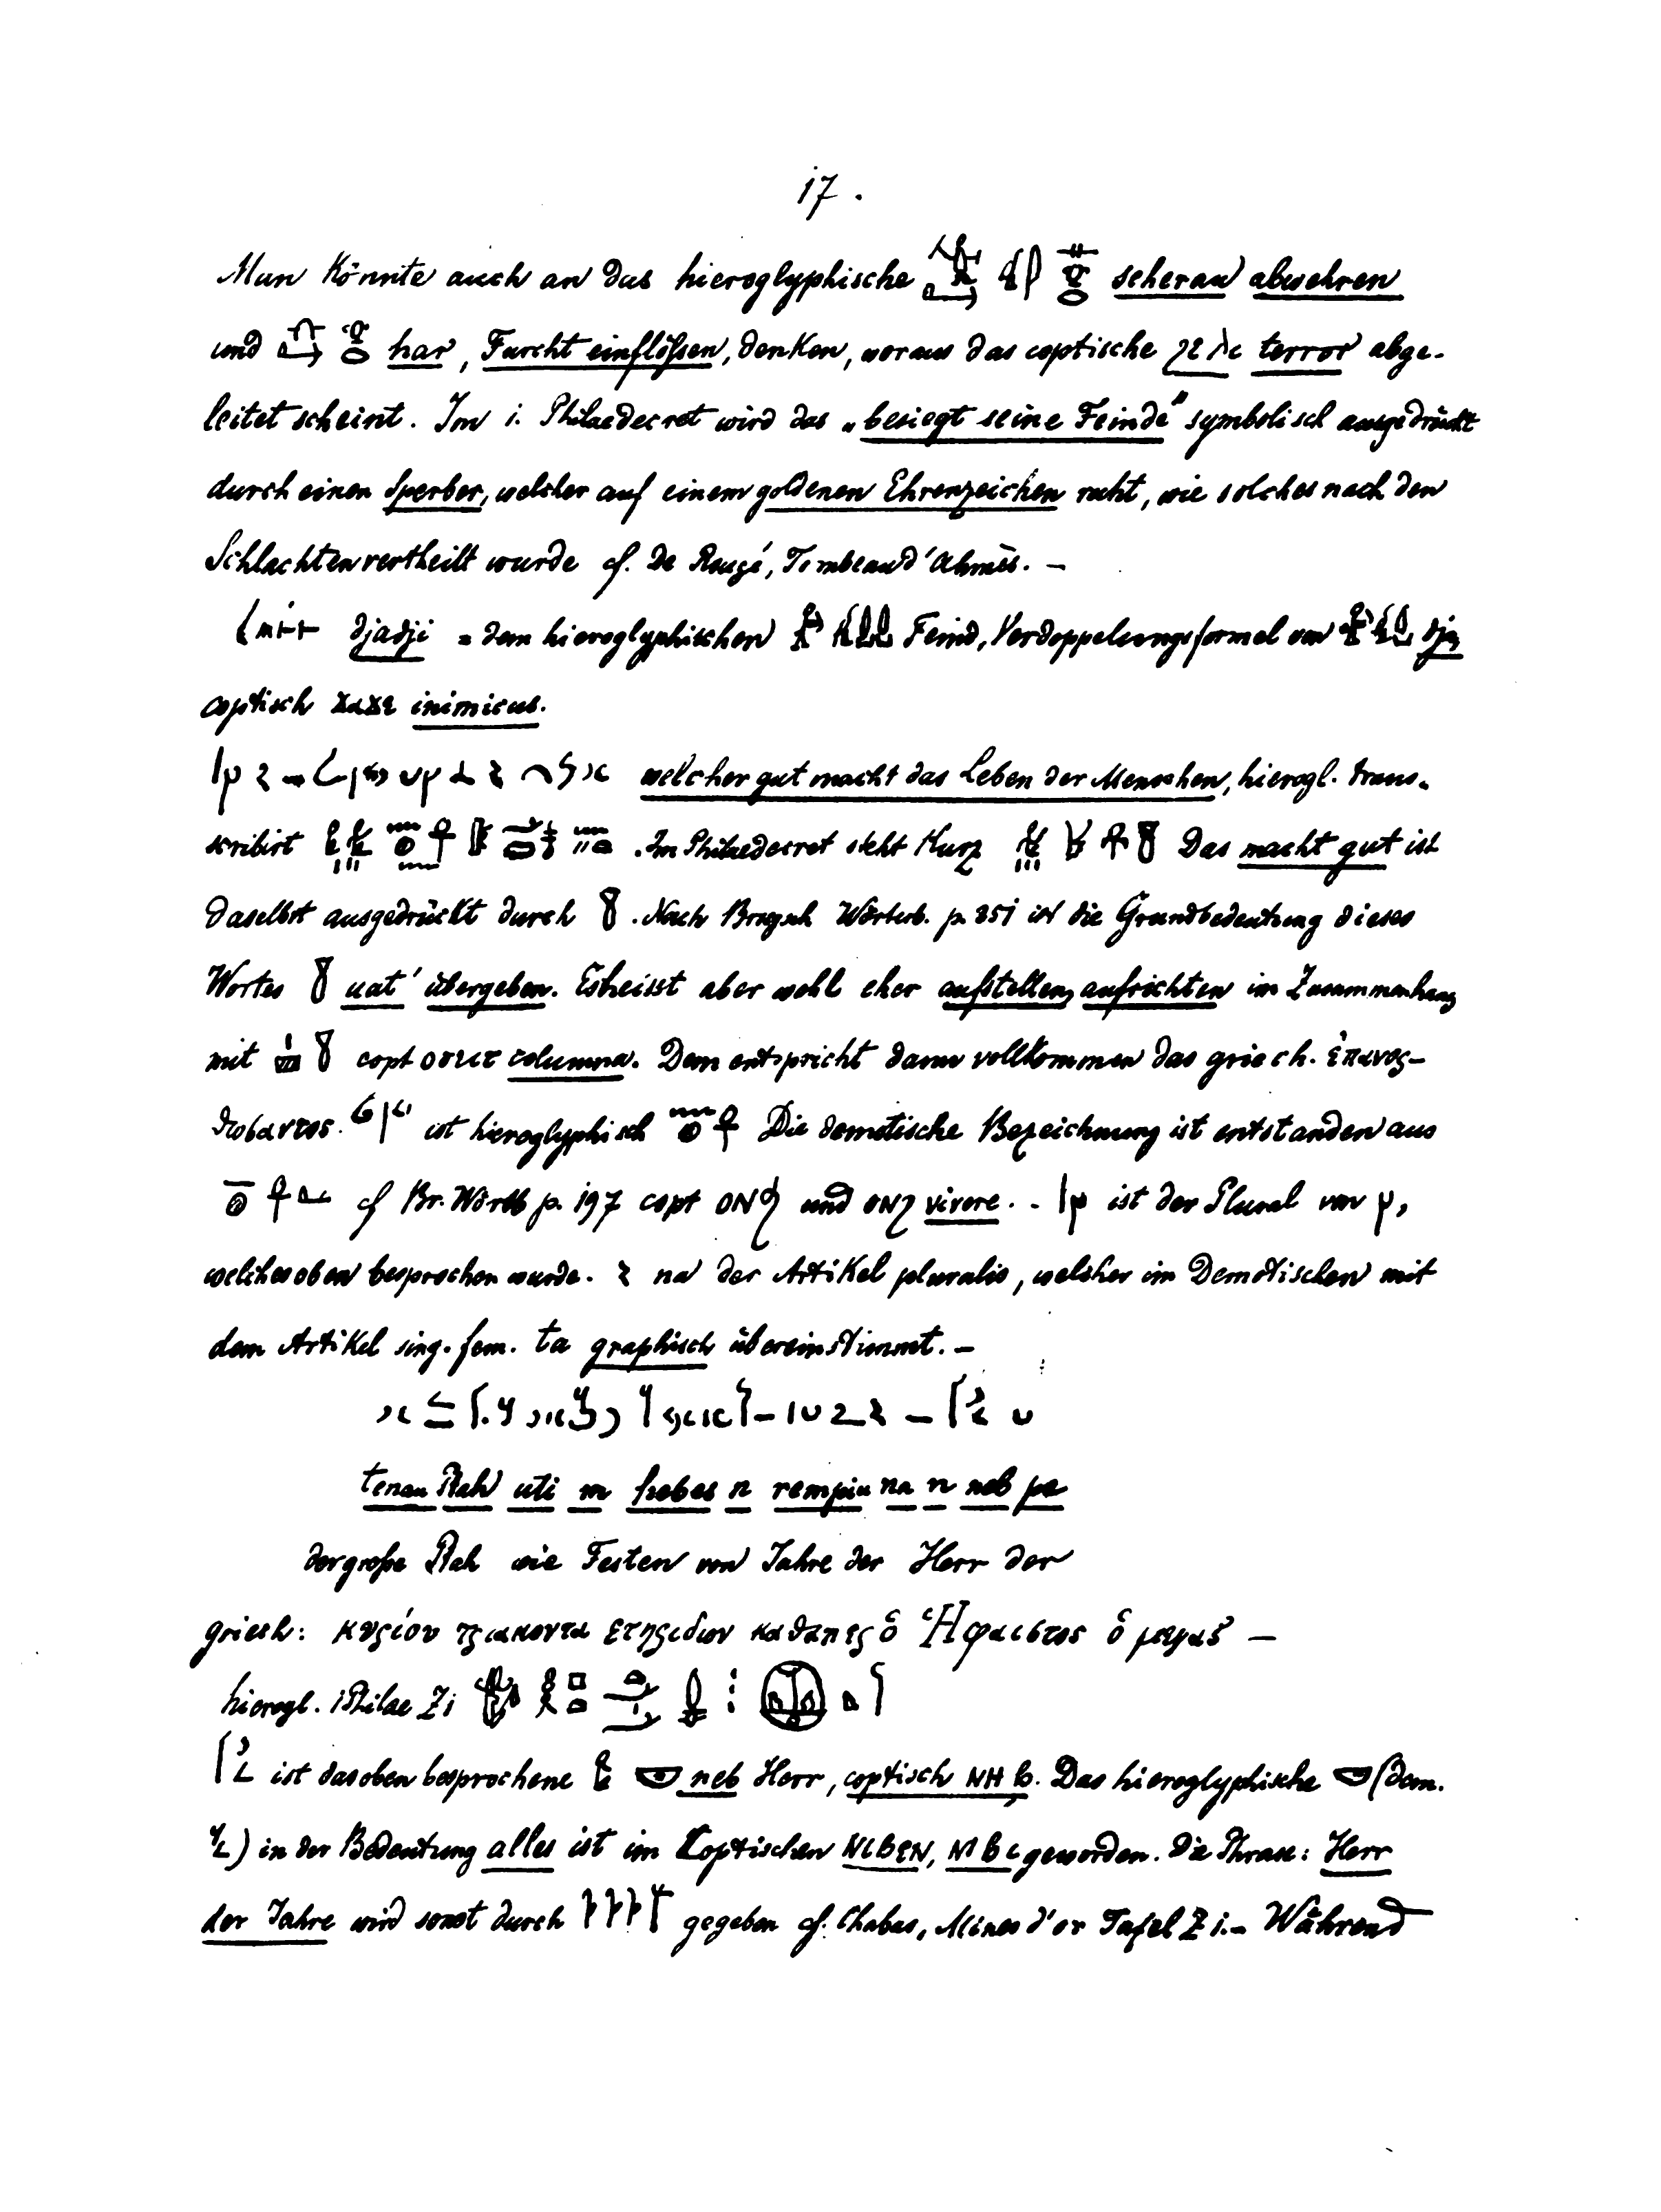 17.
Man könnte auch an das hieroglyphische scherau abwehren
und har, Furcht einflößen, denken, woraus das coptische ϩⲉⲗⲓ terror abge-
leitet scheint. Im 1. Philaedecret wird das „besiegt seine Feinde" symbolisch ausgedrückt
durch einen Sperber, welcher auf einem goldenen Ehrenzeichen ruht, wie solches nach den
Schlachten vertheilt wurde cf. De Rougé, Tombeau d'Ahmès. –
djadji = dem hieroglyphischen Feind, Verdoppelungsformel von dja,
coptisch ϫⲁϫⲉ inimicus.
welcher gut macht das Leben der Menschen, hierogl. trans-
skribirt . Im Philaedecret steht kurz Das macht gut ist
daselbst ausgedrückt durch . Nach Brugsch Wörterb. p. 351 ist die Grundbedeutung dieses
Wortes uat' übergeben. Es heisst aber wohl eher aufstellen, aufrichten im Zusammenhang
mit copt ⲟⲩⲉⲓⲧ columna. Dem entspricht dann vollkommen das griech. ἐπανορ-
θωσαντος. ist hieroglyphisch Die demotische Bezeichnung ist entstanden aus
cf Br. Wörtb p. 197 copt ⲱⲛϧ und ⲱⲛϩ vivere. - ist der Plural von ,
welches oben besprochen wurde. na der Artikel pluralis, welcher im Demotischen mit
dem Artikel sing. fem. ta graphisch übereinstimmt. –
tenau Ptah uti m hebes n rempiu na n neb pe
der große Ptah wie Festen von Jahre der Herr der
griech: κυρίου τριακοντα ετηριδων καθαπερ ὁ Ἡφαιστος ὁ μεγας –
hierogl. Philae Z1
ist das oben besprochene neb Herr, coptisch ⲛⲏⲃ. Das hieroglyphische (dem.
) in der Bedeutung alles ist im Coptischen ⲛⲓⲃⲉⲛ, ⲛⲓⲃⲓ geworden. Die Phrase: Herr
der Jahre wird sonst durch gegeben cf. Chabas, Mines d'or Tafel Z 1. – Während